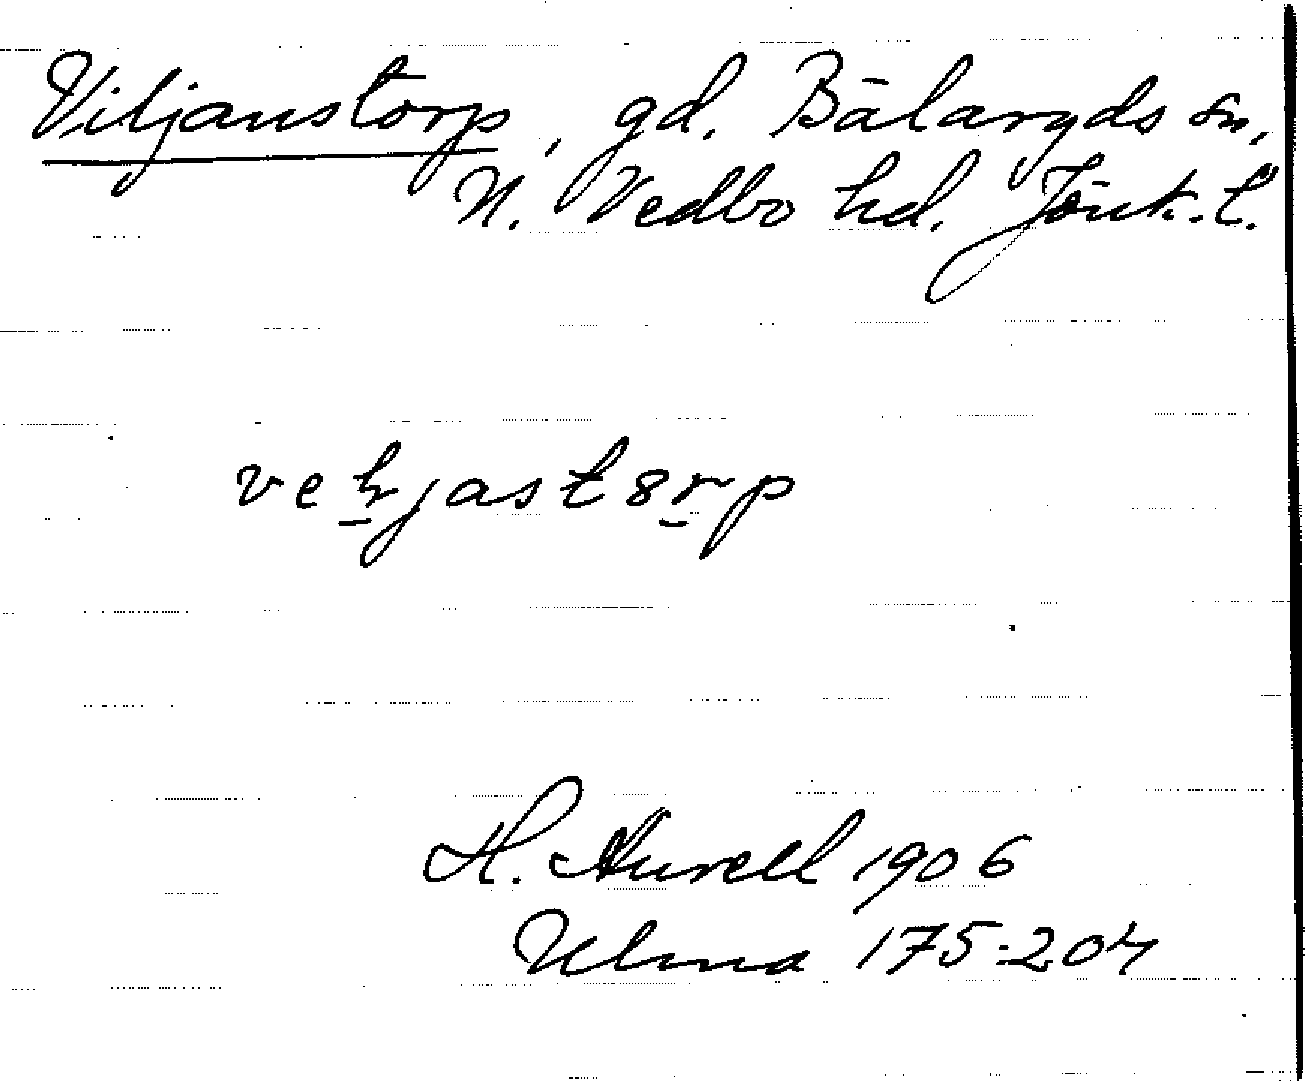 Viljanstorp, gd. Bälaryds sn,
N. Vedbo hd. Jönk. l.
vehjastorp
H. Aurell 1906
Ulma 175:204